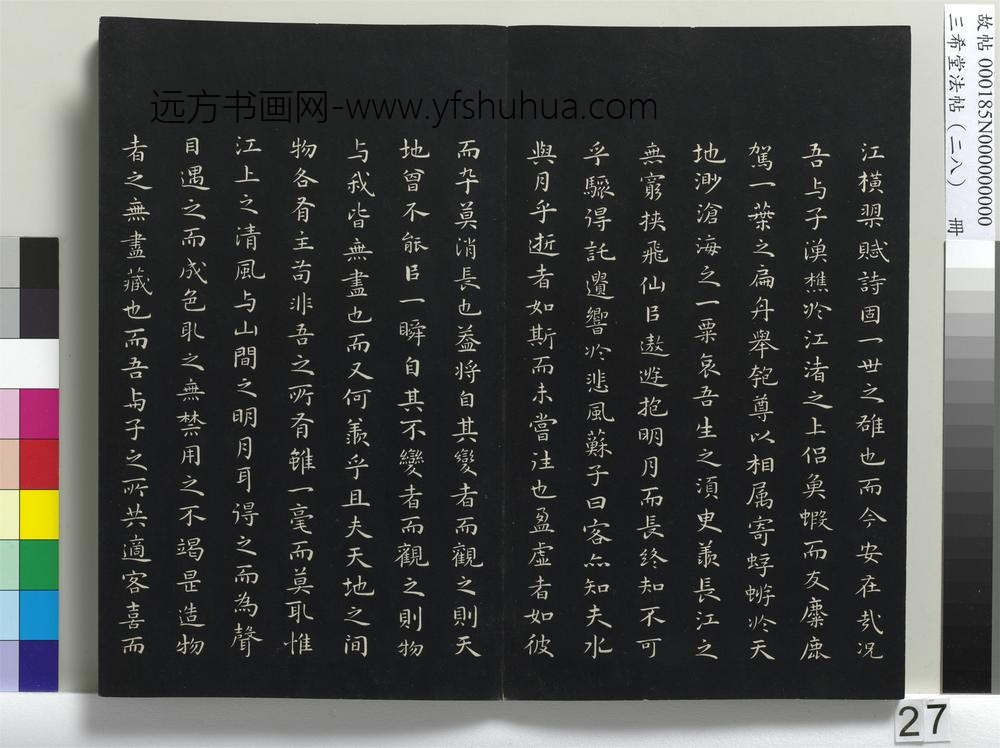 远方书画网-www.yfshuhua.com
故帖 000185N000000000
三希堂法帖（二八） 冊
江横槊賦詩固一世之雄也而今安在哉况
吾与子漁樵於江渚之上侣魚蝦而友麋鹿
駕一葉之扁舟舉匏尊以相属寄蜉蝣於天
地渺滄海之一粟哀吾生之須臾羨長江之
無窮挾飛仙㠯遨遊抱明月而長終知不可
乎驟得託遺響於悲風蘇子曰客亦知夫水
與月乎逝者如斯而未嘗往也盈虚者如彼
而卒莫消長也葢将自其變者而觀之則天
地曾不能㠯一瞬自其不變者而觀之則物
与我皆無盡也而又何羨乎且夫天地之间
物各有主苟非吾之所有雖一毫而莫取惟
江上之清風与山間之明月耳得之而為聲
目遇之而成色取之無禁用之不竭是造物
者之無盡藏也而吾与子之所共適客喜而
27